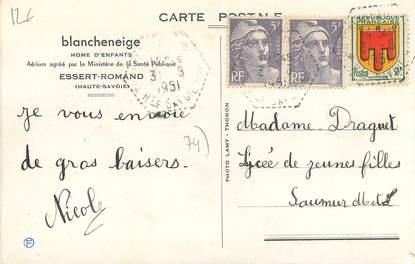 12f
CARTE POSTALE
blancheneige
HOME D'ENFANTS
Aérium agréé par le Ministère de la Santé Publique
ESSERT-ROMAND
(HAUTE-SAVOIE)
3 - 9
1951
Hte SAVOIE
5F
RF
5F
RF
RÉPUBLIQUE FRANÇAISE
Postes
2F
Je vous envoie
de gros baisers.
Nicole
74)
PHOTO LAMY - THONON
Madame Draguet
Lycée de jeunes filles
Saumur M et L